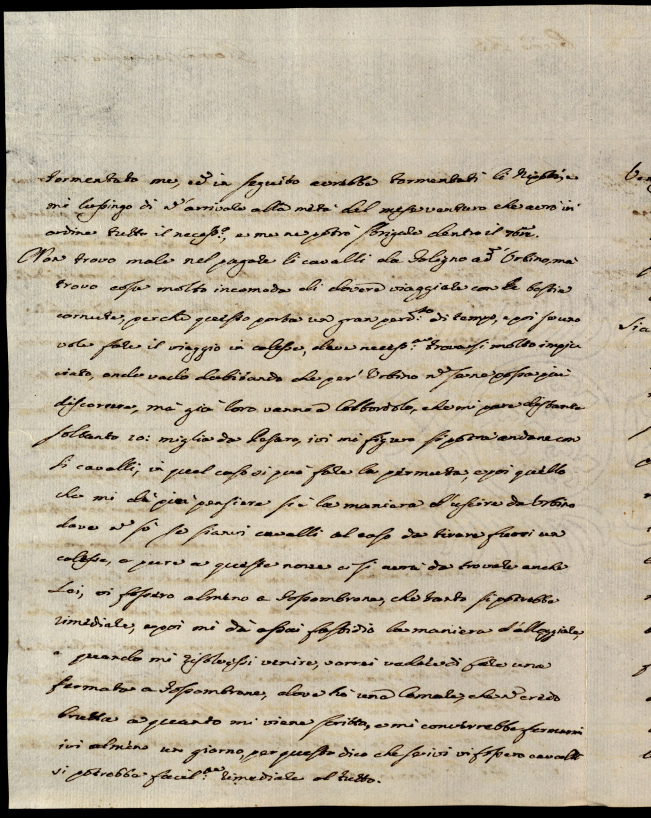 tormentato me, ed in seguito averebbe tormentati le
mi lusingo di n'arrivare alla metà del mese venturo che averò in
ordine tutto il necess.º, e me ne potrò sbrigare dentro il 7bre.
Non trovo male nel pagare li cavalli da Foligno ad Urbino, mà
trovo cosa molto incomoda di dovere viaggiare con le bestie
cornute, perche questo porta un gran perd.to di tempo, e poi se uno
vole fare il viaggio in calesse, deve necess.te trovarsi molto impic
ciato, onde vado dubitando che per Urbino nº se ne possa più
discorrere, mà già loro vanno a, che mi pare distante
soltanto 20: miglia da Pesaro, ivi mi figuro si potrà andare con
li cavalli, in qual caso si può fare la permuta, e poi quello
che mi dà più pensiere si è la maniera d'uscire da Urbino
dove nº sò se sianvi cavalli al caso da tirare fuori un
calesse, o pure a queste nozze si averà da trovare anche
Lei, vi fossero almeno a Fossombrone, che tanto si potrebbe
rimediare, e poi mi dà assai fastidio la maniera d'alloggiare,
e quando mi risolvessi venire, vorrei vedere di fare una
fermata a Fossombrone, dove hà una, che nº credo
brutta a quanto mi viene scritto, e mi converrebbe fermarmi
ivi almeno un giorno, per questo dico che se ivi vi fossero cavalli
si potrebbe facil.te rimediare al tutto.